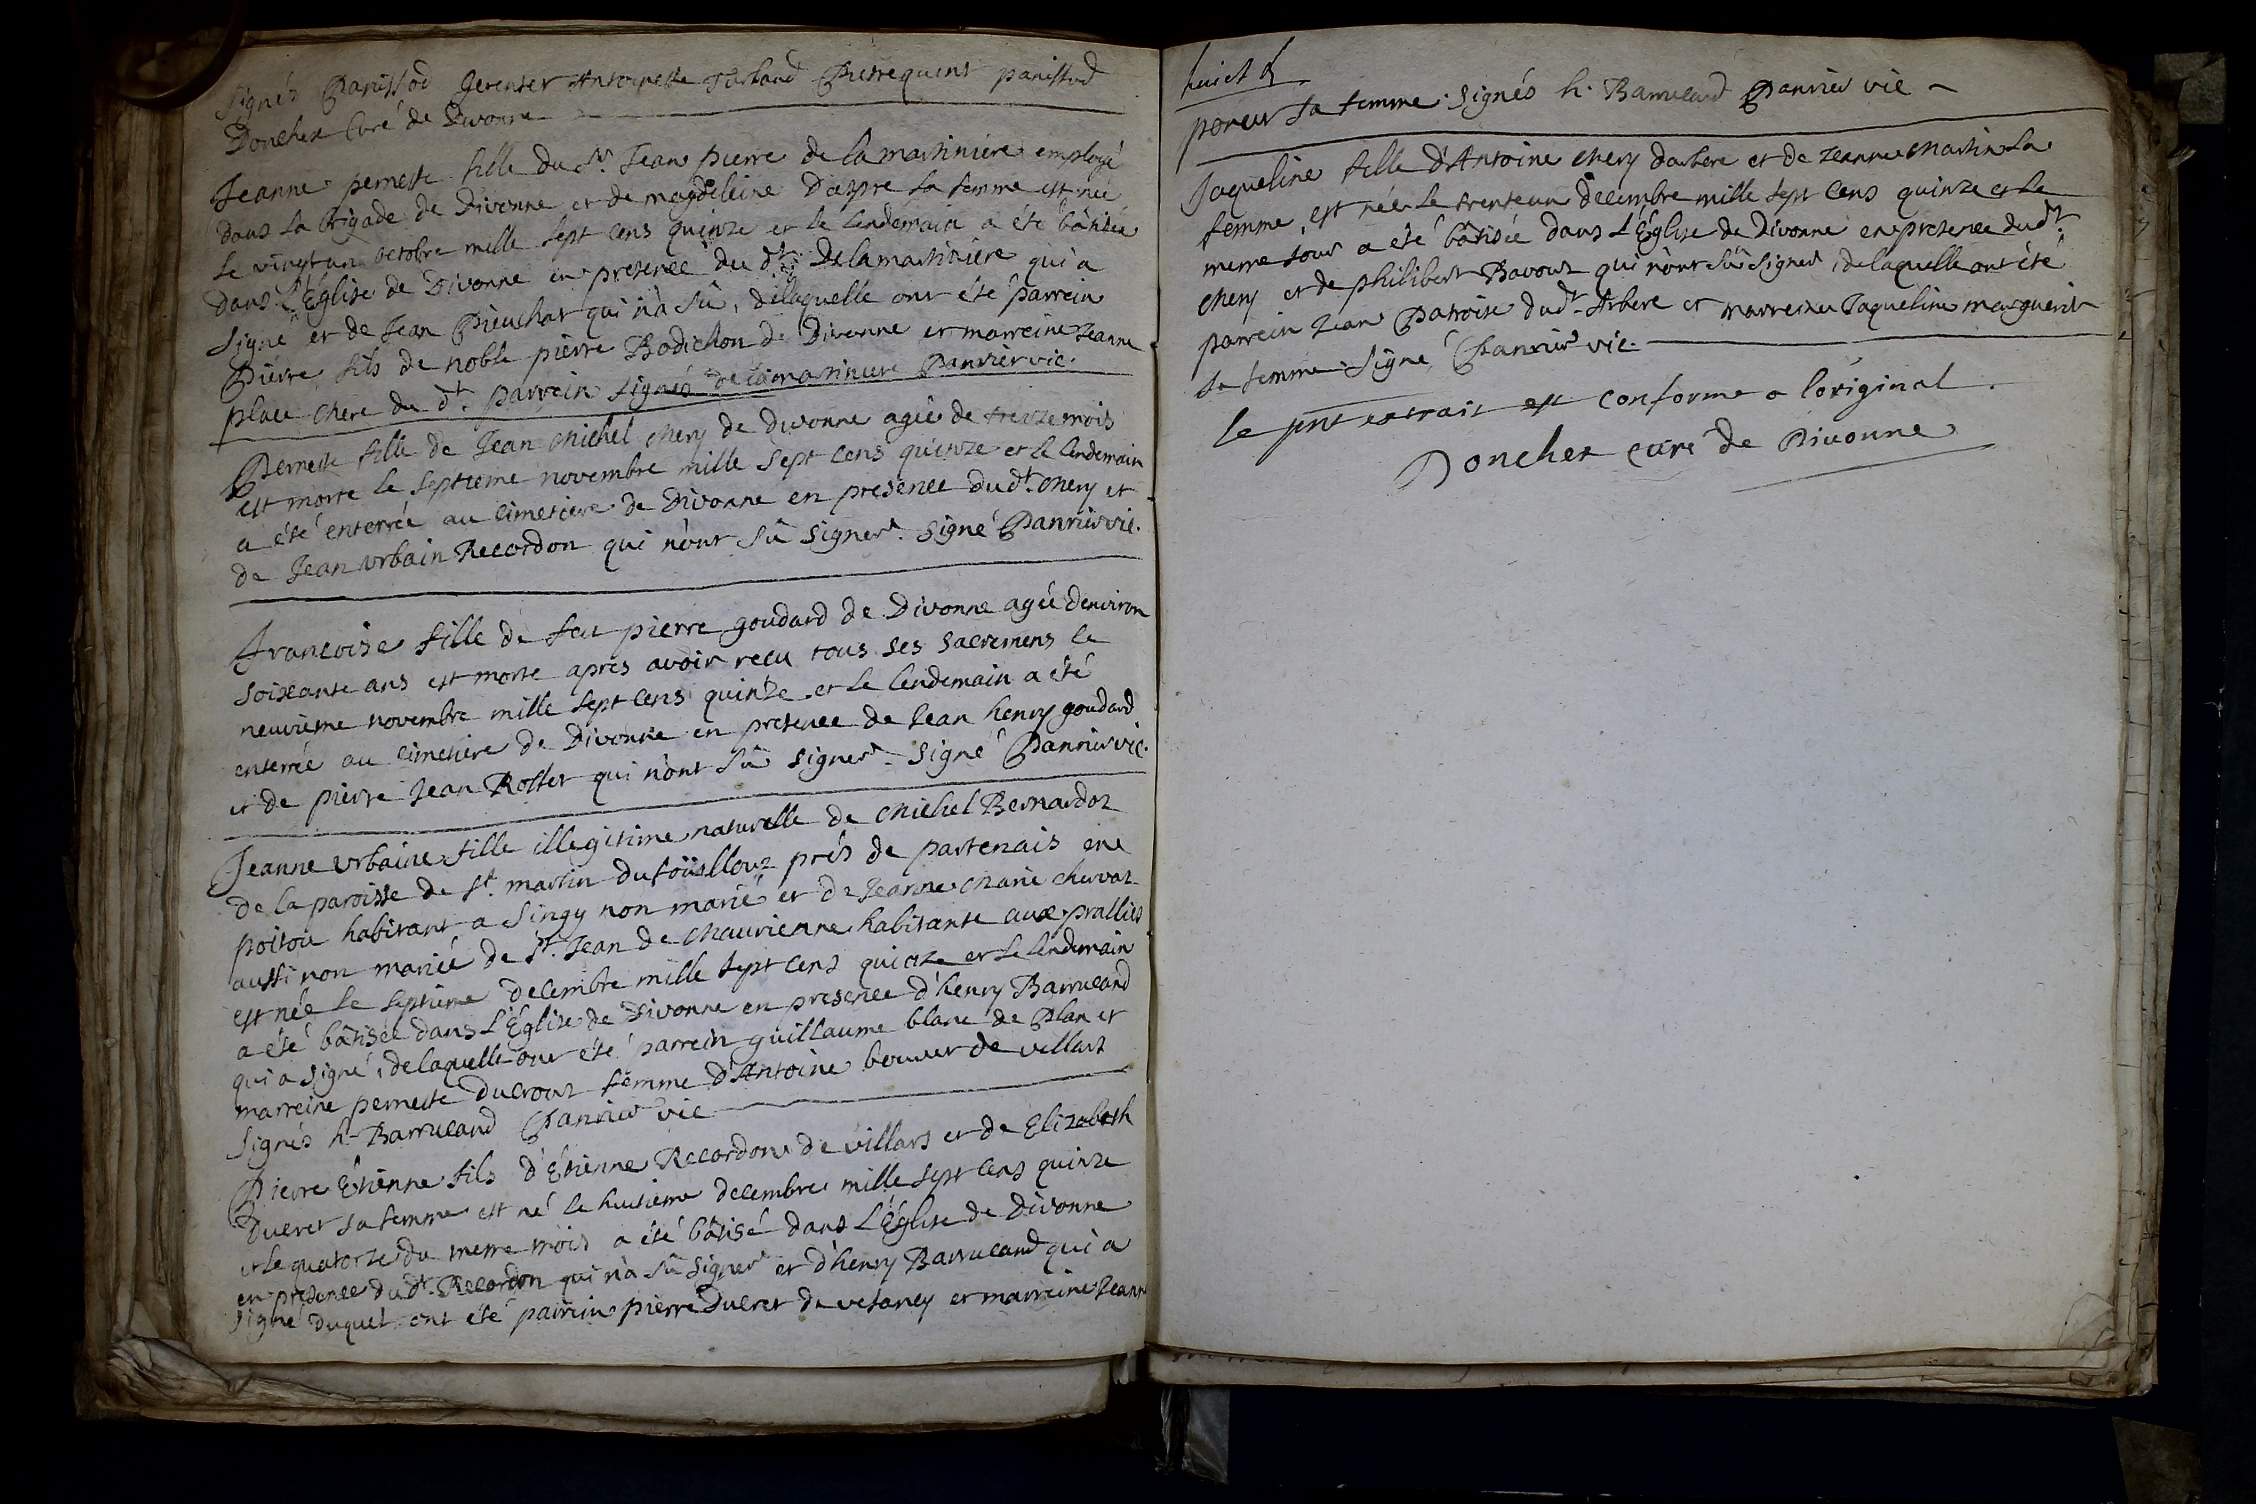 Signés Panissod Gerenter Antoinette Tarland Pietrequent panissod
Doncher Curé de Divonne
Jeanne pernette fille du Sr. Jean pierre de la martiniere employé
dans la brigade de Divonne et de magdeleine Dazpre sa femme est née
le vingt un octobre mille sept cens quinze et le lendemain a été bâtisée
dans L'Église de Divonne en presence du dt. Delamartiniere qui a
signé et de Jean Pieuchat qui n'a sû, delaquelle ont été parrein
Pierre fils de noble pierre Bodichon de Divonne et marreine Jeanne
place chere du dt. parrein signés de lamartiniere Panrier vic.
Pernette fille de Jean Michel Mery de Divonne agée de treize mois
est morte le septieme novembre mille sept cens quinze et le lendemain
a été enterrée au cimetiere de Divonne en presence dudt. Mery et
de Jean Urbain Recordon qui n'ont sû signer. signé Panrier vic.
Francoise fille de feu pierre goudard de Divonne agée denviron
soixante ans est morte apres avoir recu tous ses sacremens le
neuvieme novembre mille sept cens quinze et le lendemain a été
enterrée au cimetiere de Divonne en presence de Jean henry goudard
et de pierre Jean Rosset qui n'ont sû signer. signé Panrier vic.
Jeanne Urbaine fille illegitime naturelle de Michel Bernardoz
de la paroisse de St. martin du foüillouz prés de partenais en
poitou habitant a Singy non marié et de Jeanne Marie chervaz
aussi non mariée de St. Jean de Maurienne habitante aux prallies
est née le septieme decembre mille sept cens quinze et le lendemain
a été bâtisée dans L'Église de Divonne en presence d'henry Barrucand
qui a signé, delaquelle ont été parrein guillaume blanc de Plan et
marreine pernette ducrouz femme d'Antoine bouver de villard
signés h. Barrucand Panrier vic
Pierre Étienne fils d'Étienne Recordon de villars et de Elizabeth
Dueret sa femme est né le huitieme decembre mille sept cens quinze
et le quatorze du meme mois a été bâtisé dans L'Église de Divonne
en presence dudt. Recordon qui n'a sû signer et d'henry Barrucand qui a
signé duquel ont été parrein pierre Dueret de vesancy et marreine Jeanne
huict
poncur sa femme. Signés h. Barrucand Panrier vic
Jaqueline fille d'Antoine Mery darbere et de Jeanne Martin sa
femme, est née le trente un decembre mille sept cens quinze et le
meme jour a été bâtisée dans L'Église de Divonne en presence dudt.
Mery et de philibert Bavouz qui n'ont sû signer, delaquelle ont été
parrein Jean Patroise dudt. Arbere et marreine Jaqueline marguerit
sa femme. Signé Panrier vic.
le pnt extrait est conforme a l'original.
Doncher curé de Divonne